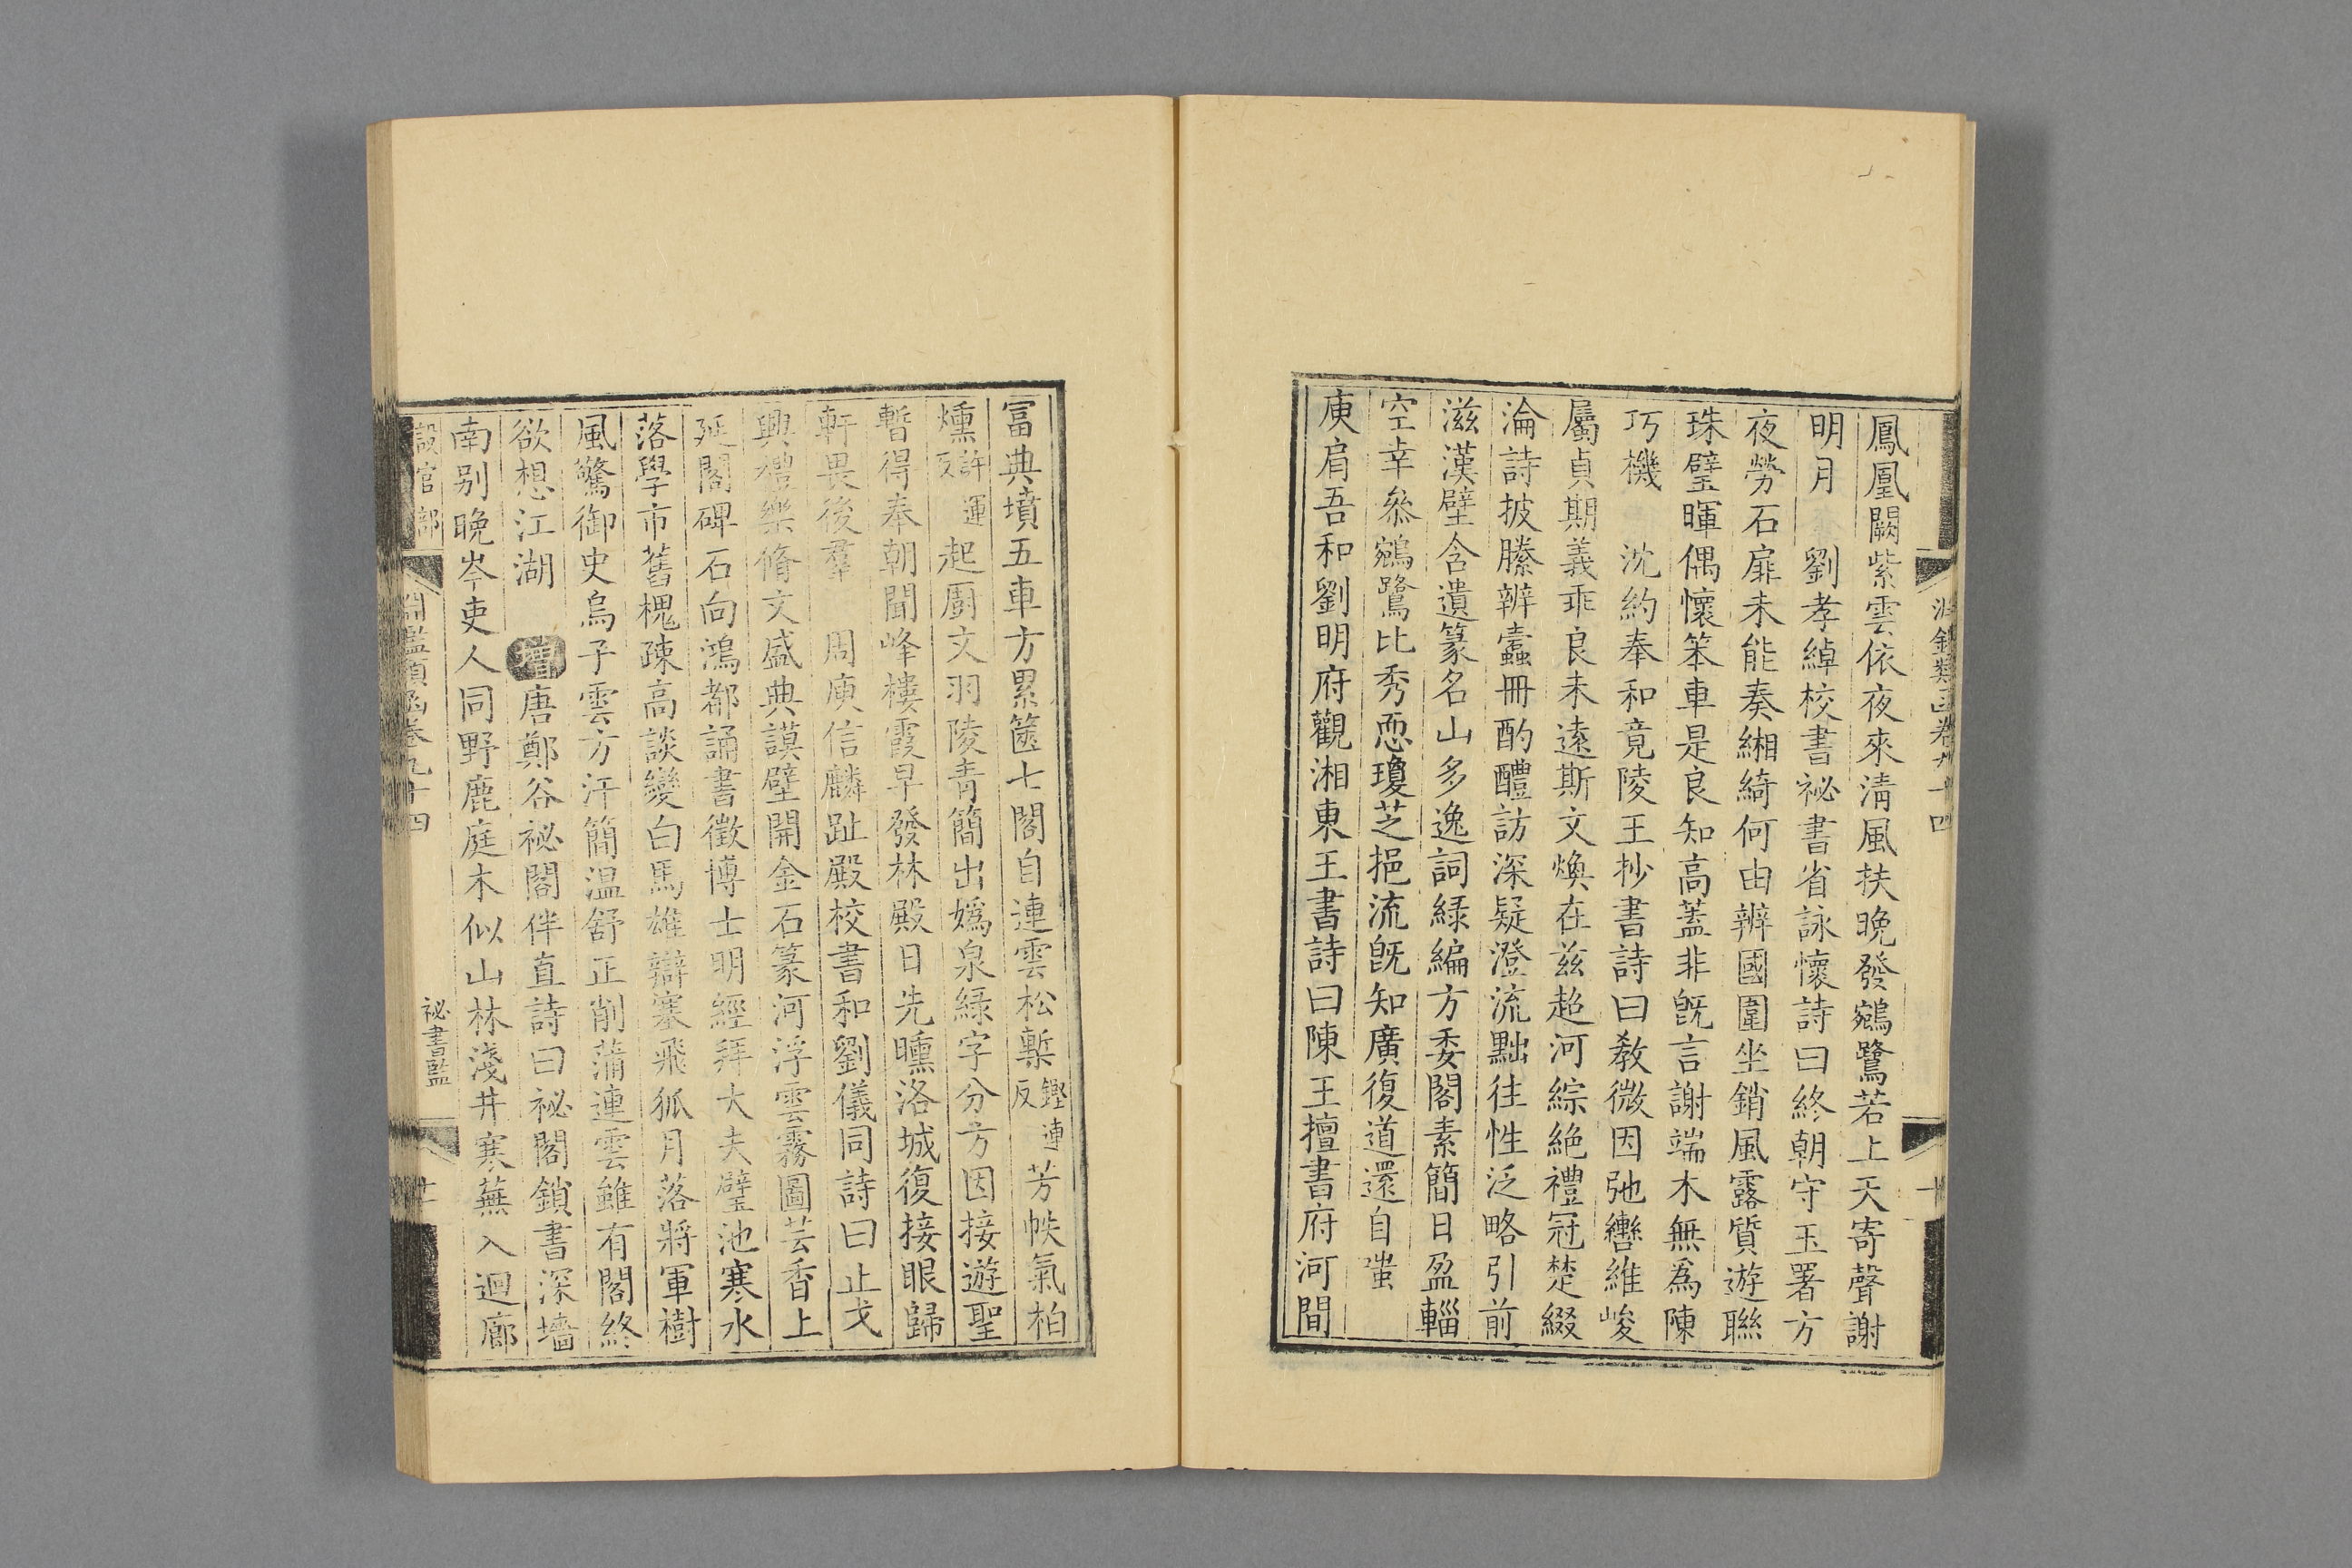 鳳凰闕紫雲依夜來清風扶晚發鵷鷺若上天寄聲謝
明月 劉孝綽校書祕書省詠懷詩曰終朝守玉署方
夜勞石扉未能奏緗綺何由辨國圍坐銷風露質遊聯
珠璧暉偶懷笨車是良知高蓋非既言謝端木無爲陳
巧機 沈約奉和竟陵王抄書詩曰教微因弛轡維峻
屬貞期義乖良未遠斯文煥在兹超河綜絶禮冠楚綴
淪詩披縢辨蠹冊酌醴訪深疑澄流黜往性泛略引前
滋漢壁含遺篆名山多逸詞緑編方委閣素簡日盈輜
空幸叅鵷鷺比秀恧瓊芝挹流既知廣復道還自嗤
庾肩吾和劉明府觀湘東王書詩曰陳王擅書府河間
富典墳五車方累篋七閣自連雲松槧鏗連反芳帙氣柏
燻許運反起厨文羽陵青簡出嬀泉緑字分方因接遊聖
暫得奉朝聞峰樓霞早發林殿日先曛洛城復接眼歸
軒畏後羣 周庾信麟趾殿校書和劉儀同詩曰止戈
興禮樂脩文盛典謨壁開金石篆河浮雲霧圖芸香上
延閣碑石向鴻都誦書徵博士明經拜大夫璧池寒水
落學市舊槐疎高談變白馬雄辯塞飛狐月落將軍樹
風驚御史烏子雲方汗簡温舒正削蒲連雲雖有閣終
欲想江湖 增唐鄭谷祕閣伴直詩曰祕閣鎖書深墻
南别晚岑吏人同野鹿庭木似山林淺井寒蕪入迴廊
設官部 淵鑑類函卷九十四 祕書監 十一